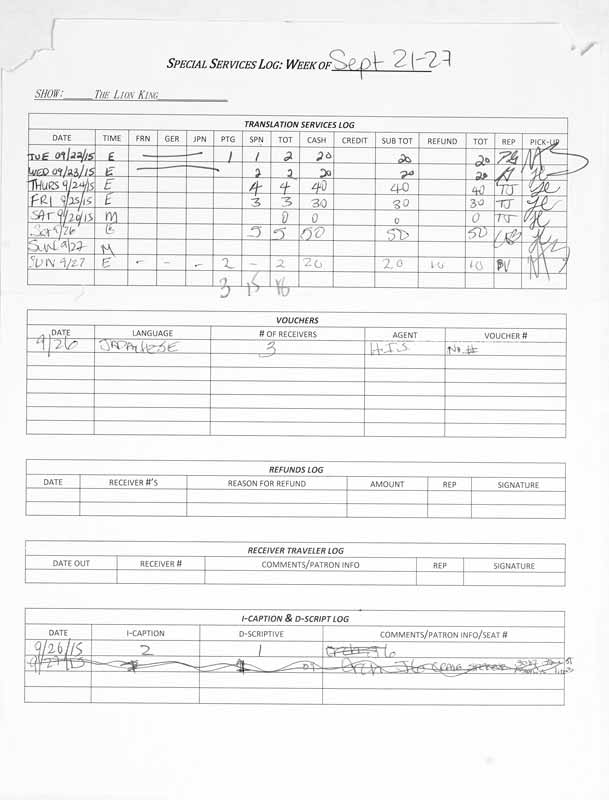 SPECIAL SERVICES LOG: WEEK OF Sept 21-27
SHOW: THE LION KING
TRANSLATION SERVICES LOG
DATE TIME FRN GER JPN PTG SPN TOT CASH CREDIT SUB TOT REFUND TOT REP PICK-UP
TUE 09/22/15 E 1 1 2 20 20 20
WED 09/23/15 E 2 2 20 20 20
THURS 9/24/15 E 4 4 40 40 40 TJ
FRI 9/25/15 E 3 3 30 30 30 TJ
SAT 9/26/15 M 0 0 0 0 TJ
Sat 9/26 5 5 50 50 50
SUN 9/27 M
SUN 9/27 E - - - 2 - 2 20 20 10 10
3 15
VOUCHERS
DATE LANGUAGE # OF RECEIVERS AGENT VOUCHER #
9/26 JAPANESE 3 H.I.S. No. #
REFUNDS LOG
DATE RECEIVER #'S REASON FOR REFUND AMOUNT REP SIGNATURE
RECEIVER TRAVELER LOG
DATE OUT RECEIVER # COMMENTS/PATRON INFO REP SIGNATURE
I-CAPTION & D-SCRIPT LOG
DATE I-CAPTION D-SCRIPTIVE COMMENTS/PATRON INFO/SEAT #
9/26/15 2 1
9/27/15